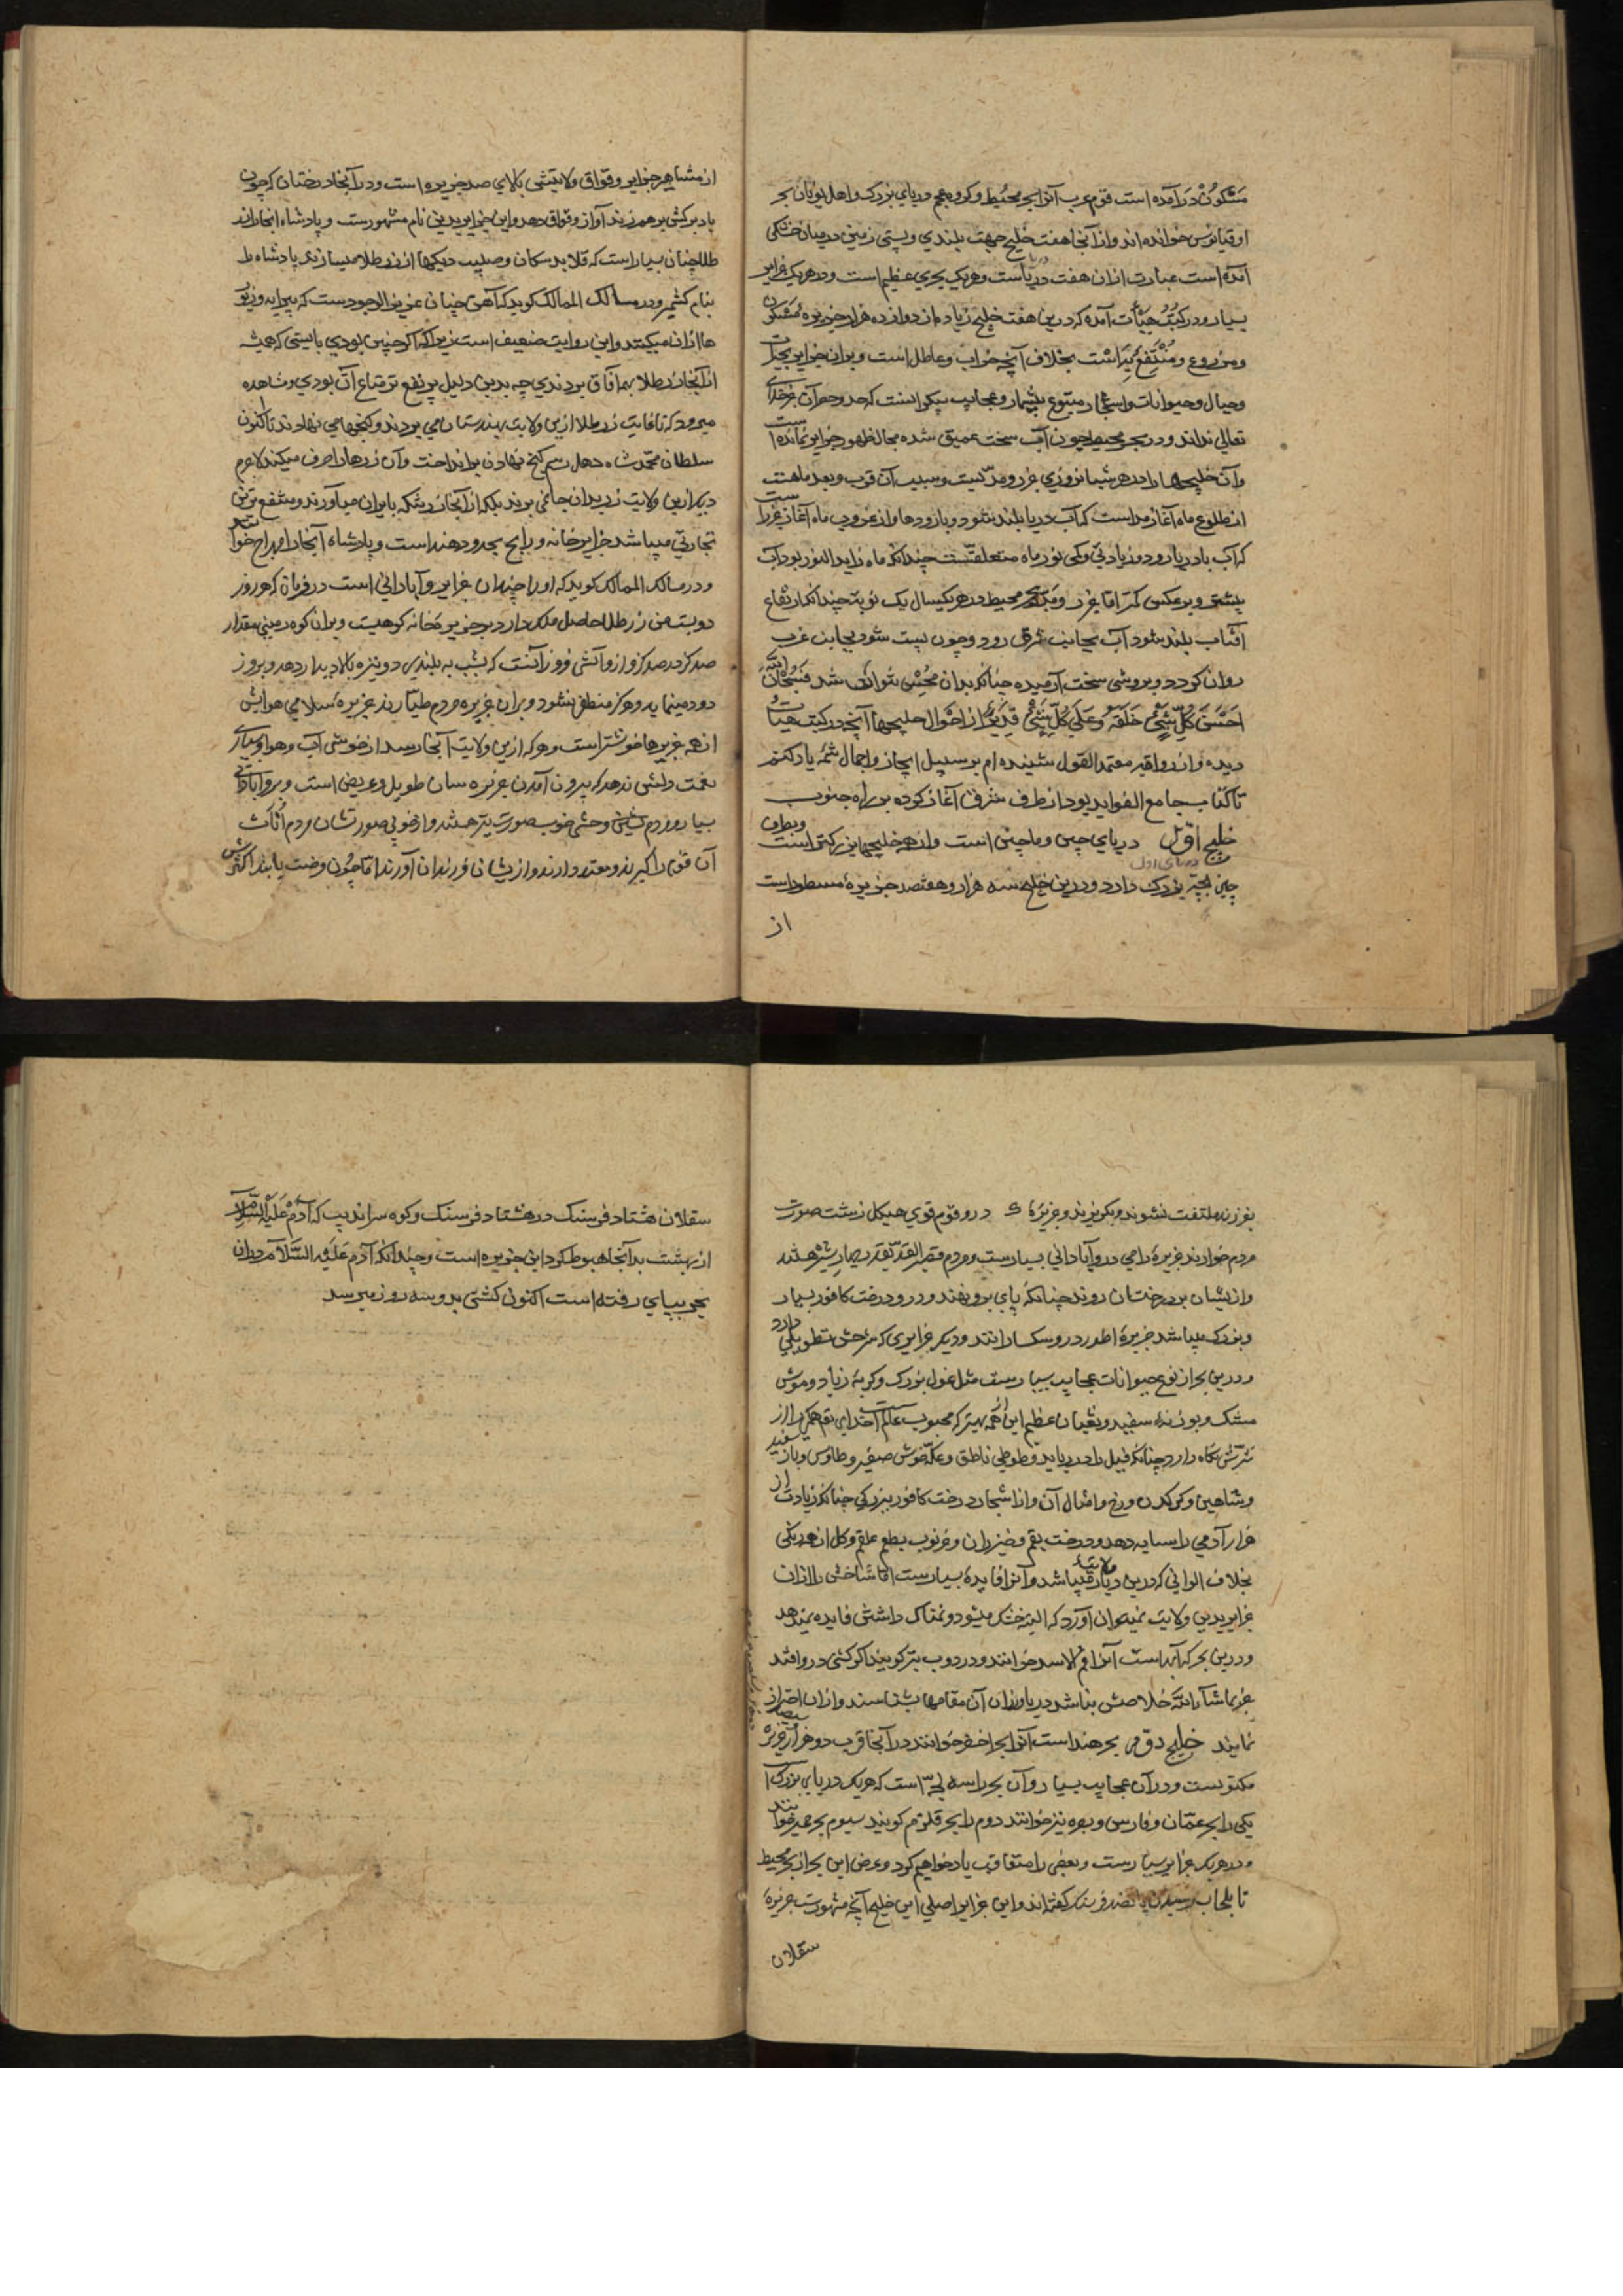 مسکون درآمده است قوم عرب آنرا بحر محیط و کروه عجم دریای بزرک و اهل یونان بحر
اوقیانوس خوانده‌اند و از آنجا هفت خلیج جهت بلندی و پستی زمین در میان خشکی
آمده است عبارت ازان هفت دریاست و هریک بحری عظیم است و در هریک جزایر
بسیار و در کتب هیات آمده که درین هفت خلیج زیاده از دوازده هزار جزیره مسکون
و مزروع و منتفع بهاست بخلاف آنچه خراب و عاطل است و بران جزایر
و جبال و حیوانات و اشجار متنوع بیشمار و عجایب بیکرانست که حد و حصر آن جز خدای
تعالی نداند و در بحر محیط چون آب سخت عمیق شده مجال ظهور جزایر نمانده است
و آن خلیجها را در هر شبانروزی جزر و مدیست و سبب آن قرب و بعد ماهست
از طلوع ماه آغاز مد است که آب دریا بلند شود و باز رودها و از غروب ماه آغاز جزر است
که آب با دریا رود و زیادتی و کمی نور ماه متعلقست چندانکه ماه زاید النور بود آب
بیشتر و بر عکس کمتر اما جزر و مد بحر محیط در هر یکسال یک نوبته چندانکه ارتفاع
آفتاب بلند شود آب بجانب شرق رود و چون پست شود بجانب غرب
روان کردد و بروشی سخت آرمیده چنانکه بدان محس نتوان شد فسبحان الذی
احسن کل شیء خلقه و علی کل شیء قدیر از احوال خلیجها آنچه در کتب هیات
دیده و از رواة معتمد القول شنیده‌ام بر سبیل ایجاز و اجمال شمه یاد کنم
تا کتاب جامع الفواید بود از طرف شرق آغاز کرده بر راه جنوب
خلیج اول دریای چین و ماچین است و از همه خلیجها بزرکتر است و بطرف
چین لجه بزرک دارد و درین خلیج سه هزار و هفتصد جزیره مسطور است
از
از مشاهیر جزایر وقواق ولایتی بالای صد جزیره است و در آنجا درختان که چون
باد برکش بر هم زند آواز وقواق دهد و این جزایر بدین نام مشهورست و پادشاه آنجا را
طلا چنان بسیار است که قلاید سکان و صلیب دیکها از زر طلا میسازند پادشاه را
بنام کشمیر و در مسالک الممالک کوید که آهن چنان عزیز الوجودست که پیرایه و زیور
ها ازان میکنند و این روایت ضعیف است زیراکه اکر چنین بودی بایستی که همیشه
از آنجا زر طلا بهمه آفاق بردندی چه بدین دلیل پر نفع‌تر متاع آن بودی و مشاهده
میرود که تا غایت زر طلا ازین ولایت بهندوستان می بردند و کنجها می نهادند تا اکنون
سلطان محمد شاه دهلی رسم کنج نهادن برانداخت و آن زرها را صرف میکند لاجرم
دیکر ازین ولایت زر بدان جا نمی برند بلکه از آنجا زر بتنکه بایران میآورند و منتفع‌ترین
تجارتی میباشد جزایر خانه و رایج بحدود هند است و پادشاه آنجا را مهراج خوانند
و در مسالک الممالک کوید که او را چندان جزایر و آبادانی است در فرمان که هر روز
دویست من زر طلا حاصل ملک دارد بر جزیره خانه کوهیست و بران کوه زمینی مقدار
صد کز در صد کز و ازو آتشی فروزانست که بشب به بلندی دو نیزه بالا دیدار دهد و بروز
دود مینماید و هرکز منطفی نشود و بران جزیره مردم طیارند جزیره سلامی هوایش
از همه جزیرها خوشتر است و هرکه ازین ولایت آنجا رسد از خوشی آب و هوا و بسیاری
نعمت دلش ندهد که بیرون آمدن جزیره سان طویل و عریض است و برو آبادانی
بسیار و مردم وحشی خوب صورت نیز هستند و از خوبی صورتشان مردم اناث
آن قوم را کیرند و مقید دارند و از ایشان فرزندان آورند اما چون فرصت یابند اکثرش
بفرزند ملتفت نشوند و بکریزند و جزیره در و قوم قوی هیکل زشت صورت
مردم خوارند جزیره رامی درو آبادانی بسیارست و مردم قصیر القد نیز هستند
و از ایشان بر درختان روند چنانکه پای برو نهند و درو درخت کافور بسیار
و بزرک میباشد جزیره اطورد رو سکسارانند و دیکر جزایری که شرحش تطویلی دارد
و درین بحر از نوع حیوانات عجایب بسیارست مثل غول بزرک و کربه زباد و موش
مشک و بوزنه سفید و ثعبان عظیم این را همه بهتر که محبوب عالم است خدای تعالی همکنرا از
شرش نکاه دارد چنانکه فیل را در رباید و طوطی ناطق و عکه خوش صفیر و طاوس و باز سفید
و شاهین و کرکدن و رخ و امثال آن و از اشجار درخت کافور ببزرکی چنانکه زیادت از
هزار آدمی را سایه دهد و درخت بقم و خیزران و خرنوب بطعم علقم و کل از هر رنکی
بخلاف الوانی که درین دیار و ولایتها میباشد و آنرا فایده بسیارست اما شاخش را ازان
جزایر بدین ولایت نمیتوان آورد که البته خشک میشود و نمناک داشتن فایده نمیدهد
و درین بحر کرداب است آنرا فم الاسد خوانند و در دوب نیز کویند اکر کشتی درو افتد
جز بماشاالله خلاصش نباشد دریاورزان آن مقامها بشناسند و ازان احتراز
نمایند خلیج دوم بحر هند است آنرا بحر اخضر خوانند در آنجا قرب دو هزار و سیصد جزیره
مکتوبست و دران عجایب بسیار و آن بحر را سه لجه است که هریک دریای بزرک است
یکی را بحر عمان و فارس و بصره نیز خوانند دوم را بحر قلزم کویند سیوم بحر حمیر خوانند
و در هریک جزایر بسیارست و بعضی را متعاقب یاد خواهیم کرد و عرض این بحر از بحر محیط
تا بلجاب رسیدن پانصد فرسنک کفته‌اند و این جزایر اصلی این خلیج آنچه مشهورست جزیره
سقلان
سقلان هشتاد فرسنک در هشتاد فرسنک و کوه سراندیب که آدم علیه السلام
از بهشت بدانجا هبوط کرد این جزیره است و چندانکه آدم علیه السلام دران
بحر بپای رفته است اکنون کشتی بدو سه روز میرسد